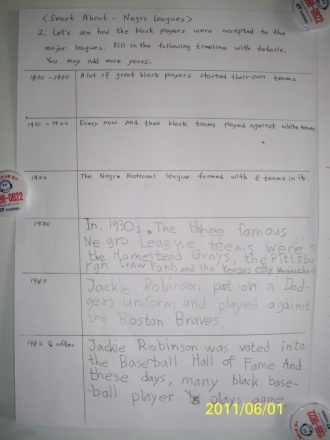 <Smart About - Negro Leagues>
2. Let's see how the black players were accepted to the
major leagues. Fill in the following timeline with details.
You may add more years.
A lot of great black players started their own teams.
Every now and then black teams played against white teams.
The Negro National league formed with 8 teams in it.
1930
In 1930s, The three famous
Negro League teems were
the Homestead Grays, the Pittsbu-
rgh Crawfords and the Kansas City
1947
Jackie Robinson put on a Dod-
gers uniform and played against
the Boston Braves
1962 & after
Jackie Robinson was voted into
the Baseball Hall of Fame And
these days, many black base-
ball player plays game
2011/06/01